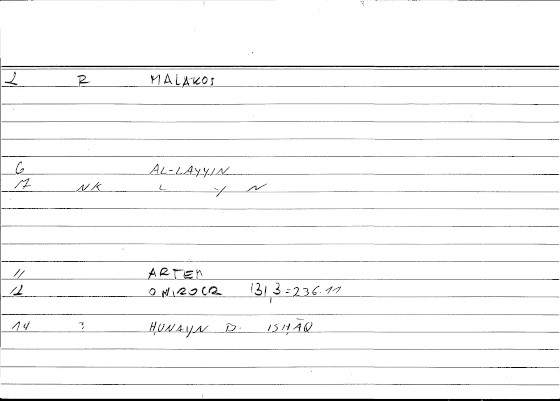 2 R MALAKOS
6 AL-LAYYIN
17 NK L Y N
11 ARTEM
12 ONIROCR 131,3=236.11
14 3 ḤUNAYN B. ISḤĀQ